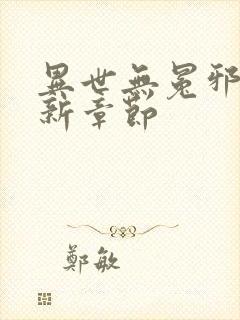 異世無冕邪
新章節
鄭敏